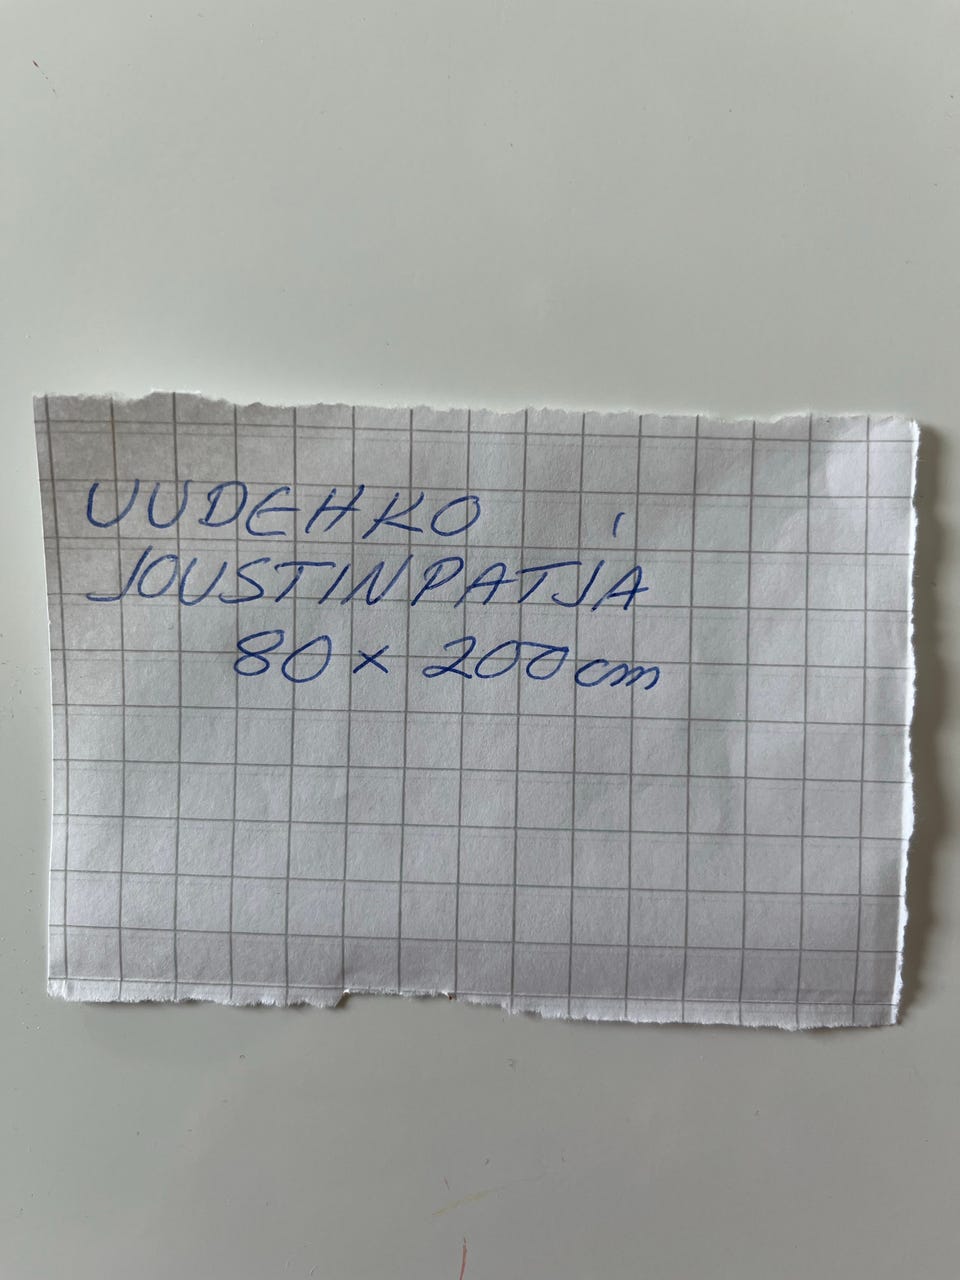 UUDEHKO
JOUSTINPATJA
80 x 200 cm